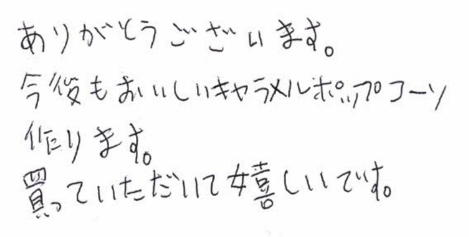 ありがとうございます。
今後もおいしいキャラメルポップコーン
作ります。
買っていただいて嬉しいです。